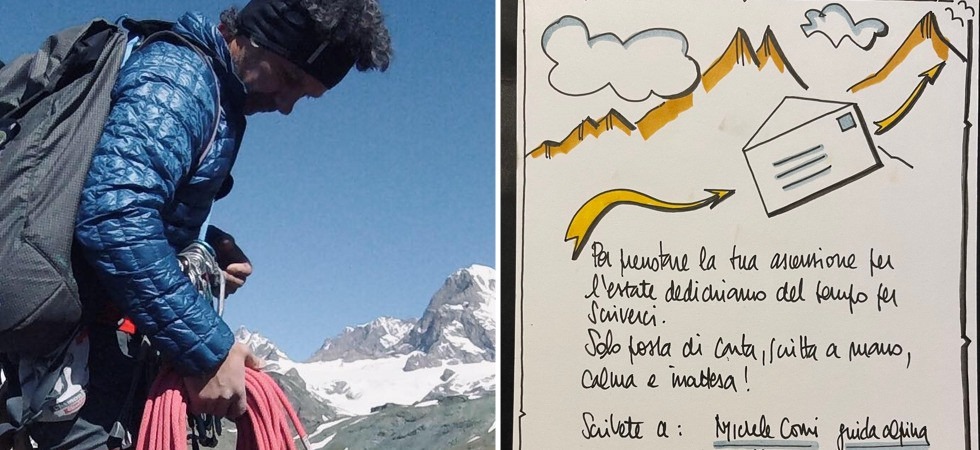 Per prenotare la tua ascensione per
l'estate dedichiamo del tempo per
scriverci.
Solo posta di carta, scritta a mano,
calma e inattesa!
Scrivete a: Michele Comi guida alpina